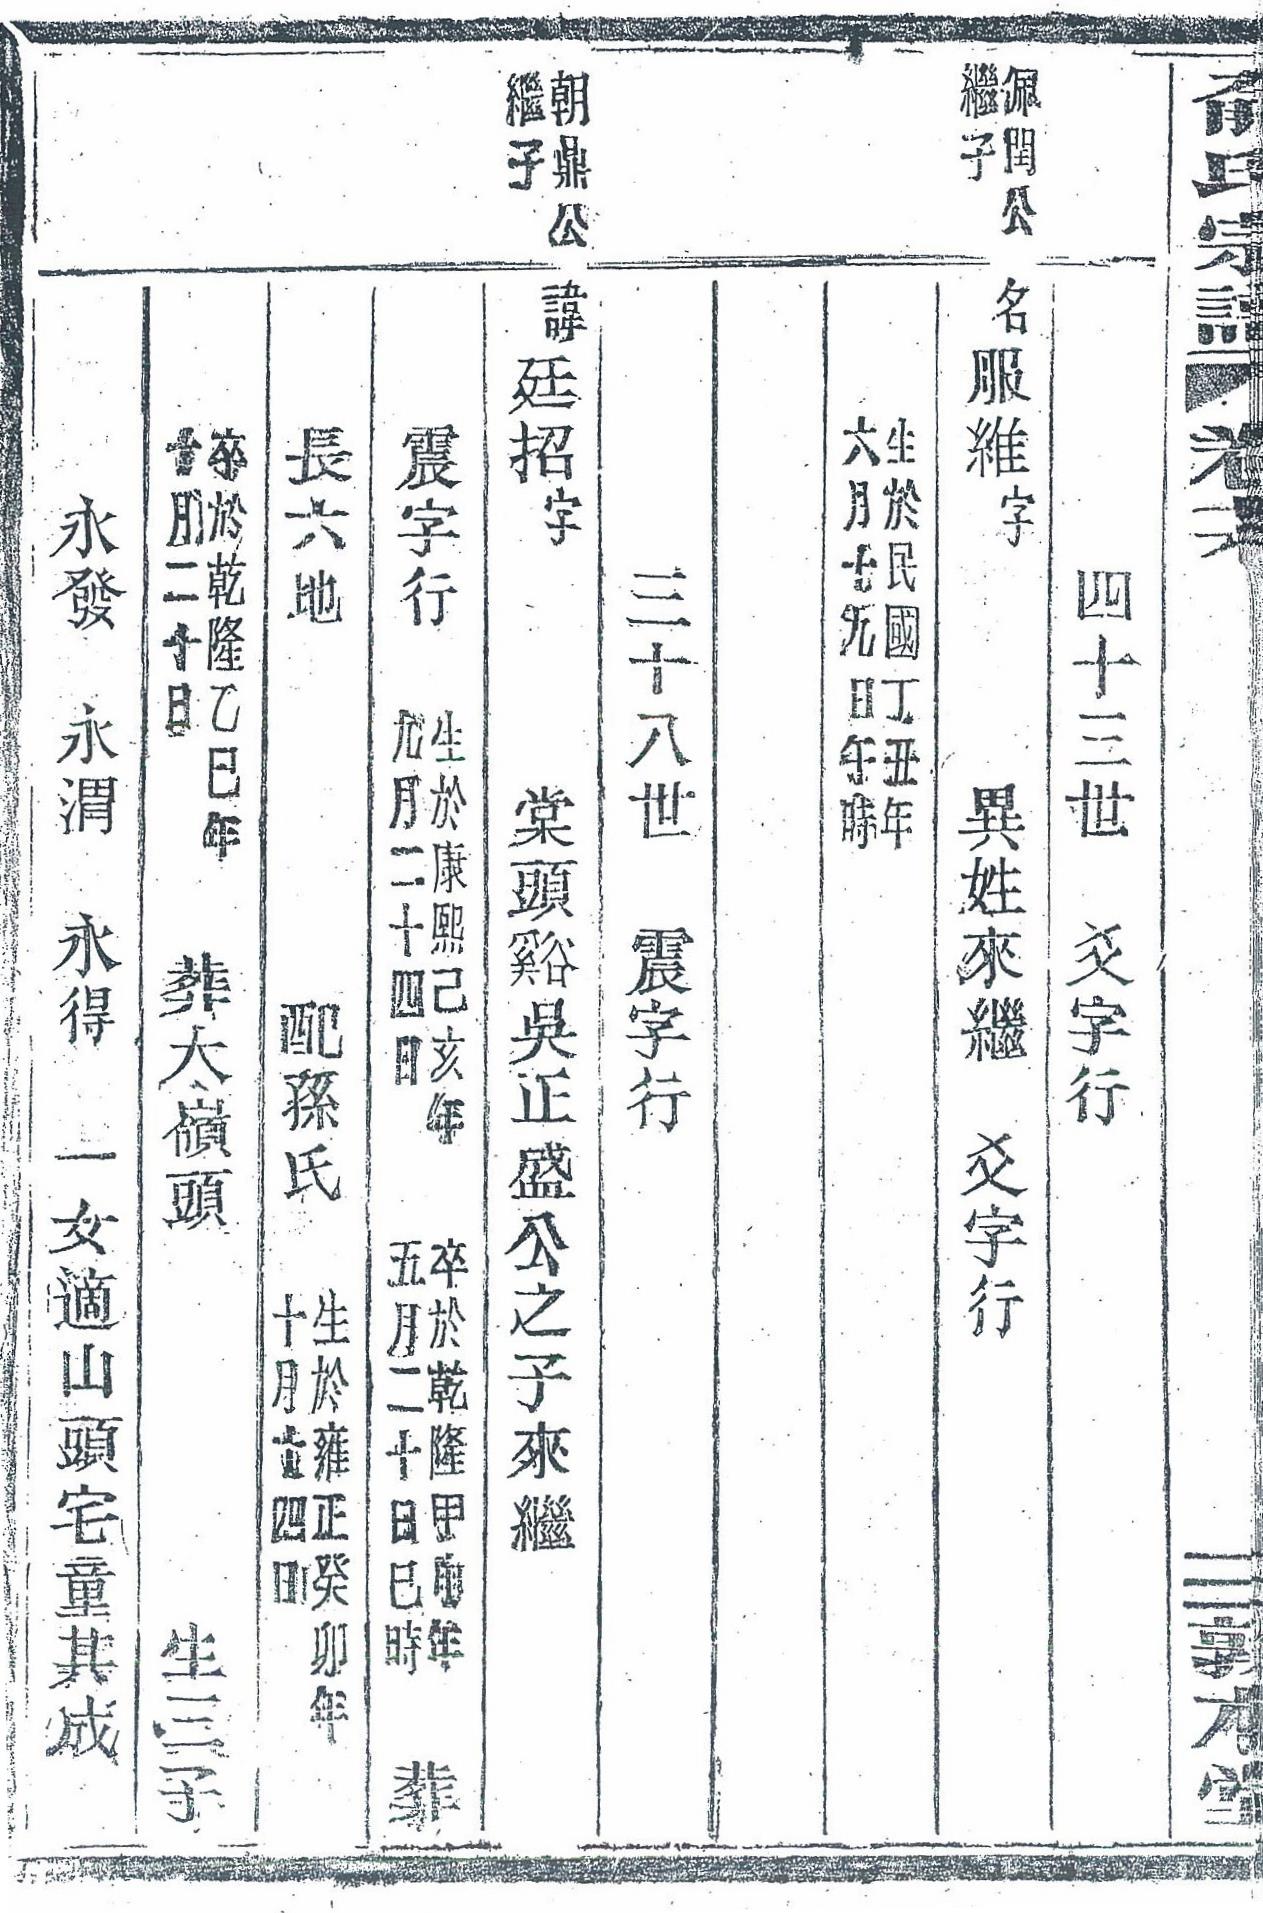 俞氏宗譜 卷六 三 敦本堂
四十三世 爻字行
佩閏公
繼子
名服維字 異姓來繼 爻字行
生於民國丁丑年
六月十九日午時
三十八世 震字行
朝鼎公
繼子
諱廷招字 棠頭谿吳正盛公之子來繼
震字行
生於康熙己亥年
九月二十四日
卒於乾隆甲申年
五月二十日巳時
葬
長六地 配孫氏
生於雍正癸卯年
十月廿四日
卒於乾隆乙巳年
十月二十日
葬大嶺頭 生三子
永發 永渭 永得 一女適山頭宅童其成